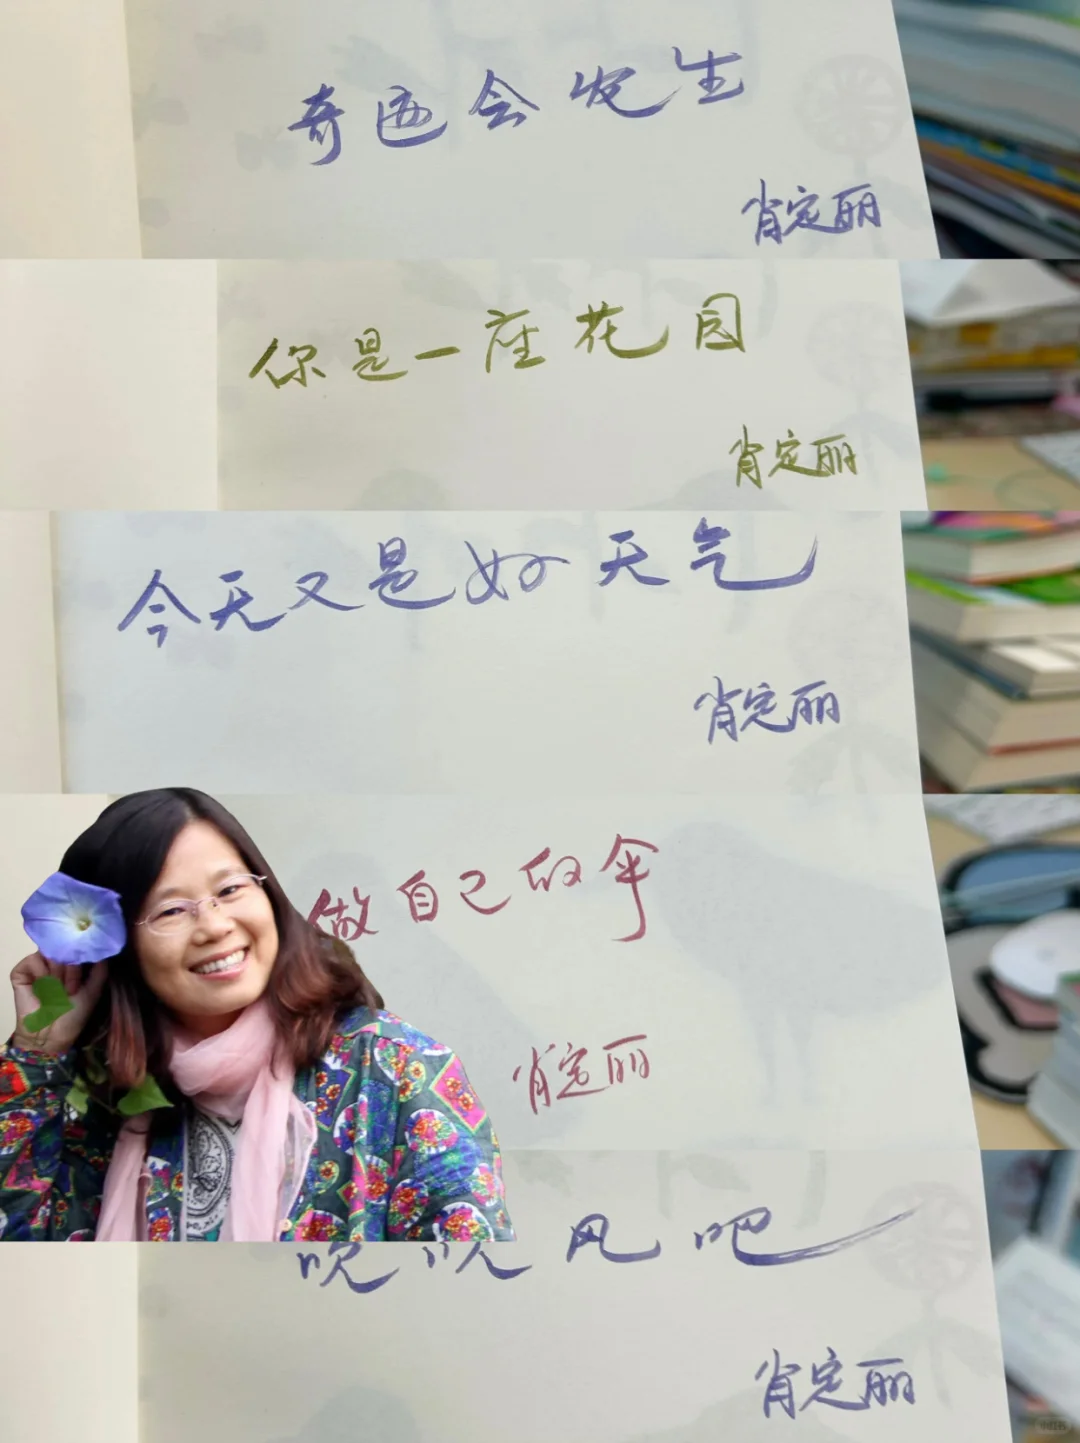 奇迹会发生
肖定丽
你是一座花园
肖定丽
今天又是好天气
肖定丽
做自己的伞
肖定丽
吹吹风吧
肖定丽